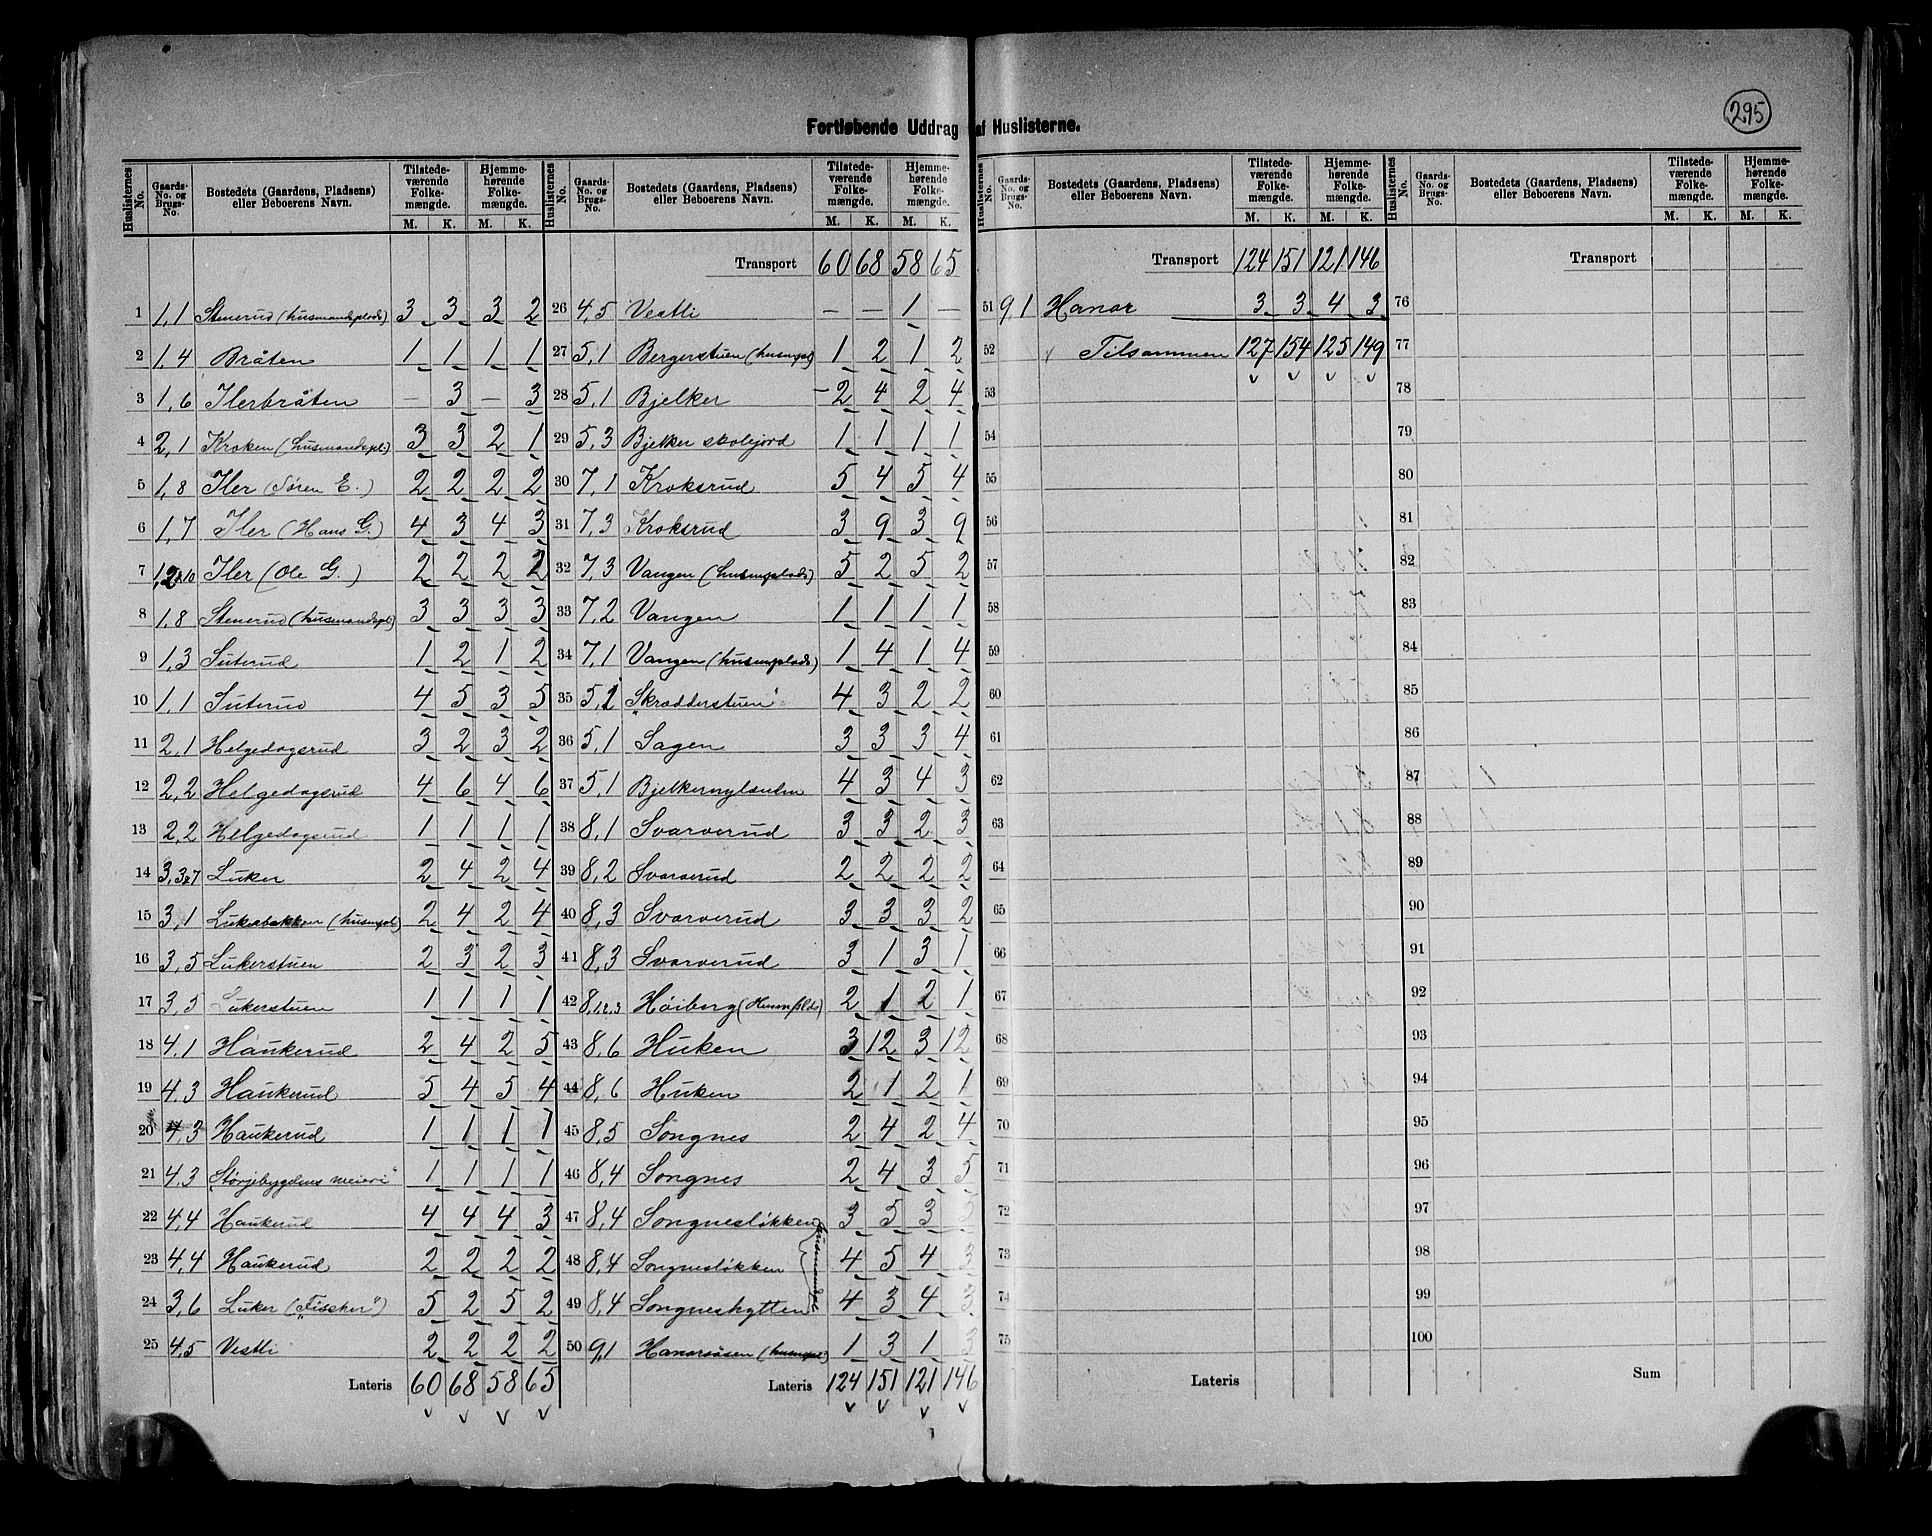 295
Fortløbende Uddrag af Huslisterne.
Huslisternes No. | Gaards-No. og Brugs-No. | Bostedets (Gaardens, Pladsens) eller Beboerens Navn. | Tilstedeværende Folkemængde. M. K. | Hjemmehørende Folkemængde. M. K.
1 1,1 Stenerud (husmandsplads) 3 3 3 2
2 1,4 Bråten 1 1 1 1
3 1,6 Ilerbråten — 3 — 3
4 2,1 Kroken (husmandspl.) 3 3 2 1
5 1,8 Iler (Søren E.) 2 2 2 2
6 1,7 Iler (Hans G.) 4 3 4 3
7 Iler (Ole G.) 2 2 2 2
8 1,8 Stenerud (husmandspl) 3 3 3 3
9 1,3 Suterud 1 2 1 2
10 1,1 Suterud 4 5 3 5
11 2,1 Helgedagsrud 3 2 3 2
12 2,2 Helgedagsrud 4 6 4 6
13 2,2 Helgedagsrud 1 1 1 1
14 3,3&7 Luker 2 4 2 4
15 3,1 Lukerbakken (husmpl) 2 4 2 4
16 3,5 Lukerstuen 2 3 2 3
17 3,5 Lukerstuen 1 1 1 1
18 4,1 Haukerud 2 4 2 5
19 4,3 Haukerud 5 4 5 4
20 4,3 Haukerud 1 1 1 1
21 4,3 "Størjebygdens meieri" 1 1 1 1
22 4,4 Haukerud 4 4 4 3
23 4,4 Haukerud 2 2 2 2
24 3,6 Luker ("Fissker") 5 2 5 2
25 4,5 Vestli 2 2 2 2
Lateris 60 68 58 65
Transport 60 68 58 65
26 4,5 Vestli — — 1 —
27 5,1 Bergerstuen (husmpl) 1 2 1 2
28 5,1 Bjelker 2 4 2 4
29 5,3 Bjelker skolejord 1 1 1 1
30 7,1 Kroksrud 5 4 5 4
31 7,3 Kroksrud 3 9 3 9
32 7,3 Vangen (husmplads) 5 2 5 2
33 7,2 Vangen 1 1 1 1
34 7,1 Vangen (husmplads) 1 4 1 4
35 "Skrædderstuen" 4 3 2 2
36 5,1 Sagen 3 3 3 4
37 5,1 4 3 4 3
38 8,1 Svarverud 3 3 2 3
39 8,2 Svarverud 2 2 2 2
40 8,3 Svarverud 3 3 3 2
41 8,3 Svarverud 3 1 3 1
42 8,1,2,3 Høiberg (Husmplds) 2 1 2 1
43 8,6 Huken 3 12 3 12
44 8,6 Huken 2 1 2 1
45 8,5 Songnes 2 4 2 4
46 8,4 Songnes 2 4 3 5
47 8,4 Songnesløkken 3 5 3 5
48 8,4 Songnesløkken 4 5 4 3
49 8,4 Songneshytten 4 3 4 3
50 9,1 Hanaråsen (husmpl) 1 3 1 3
Lateris 124 151 121 146
Huslisternes No. | Gaards-No. og Brugs-No. | Bostedets (Gaardens, Pladsens) eller Beboerens Navn. | Tilstedeværende Folkemængde. M. K. | Hjemmehørende Folkemængde. M. K.
Transport 124 151 121 146
51 9,1 Hanar 3 3 4 3
52 Tilsammen 127 154 125 149
53
54
55
56
57
58
59
60
61
62
63
64
65
66
67
68
69
70
71
72
73
74
75
Lateris
Transport
76
77
78
79
80
81
82
83
84
85
86
87
88
89
90
91
92
93
94
95
96
97
98
99
100
Sum